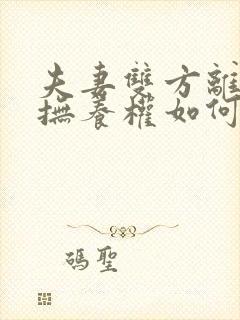 夫妻雙方離
撫養權如何
瑪聖